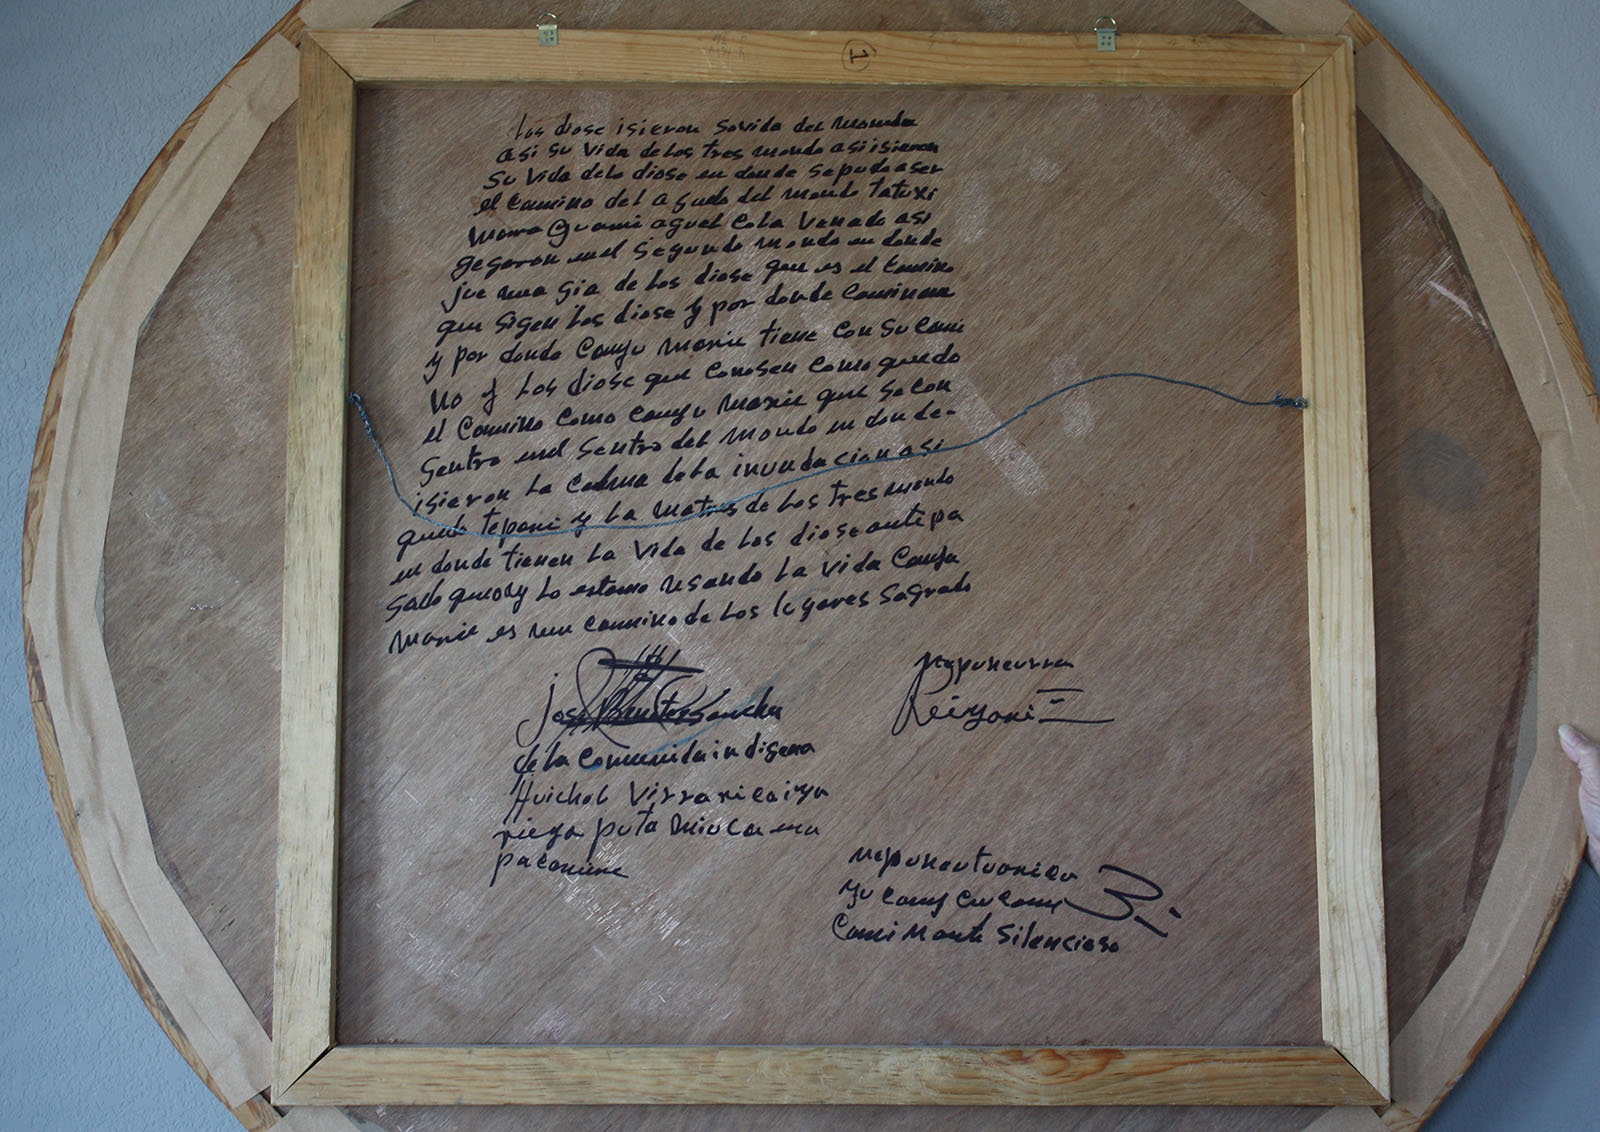 1
los diose isieron sovida del monda
asi su vida de los tres mondo asi isieron
su vida delo diose en donde sepudo aser
el camino del a guelo del mondo tatuxi
mara guami aguel Cola Venado asi
gegaron enel segundo mondo en donde
jue una gia de los diose que es el camino
que sigen los diose y por donde caminan
y por donde Cauyu marie tiene con su cami
no y los diose que conosen como quedo
el camino como cauyu marie que se con
sentro enel sentro del mondo en don de-
isieron la dela inundacion asi
quedo tepari y la matres de los tres mondo
en donde tienen la vida de los diose antepa
sado que oy lo estamo usando la vida Cauyu
marie es un camino de los lugares sagrado
jose Benites sanches
de la comunida indigena
Huichol
pota
nepaneurra
nepaneutuarica
yu cauy
Cami nante Silencioso